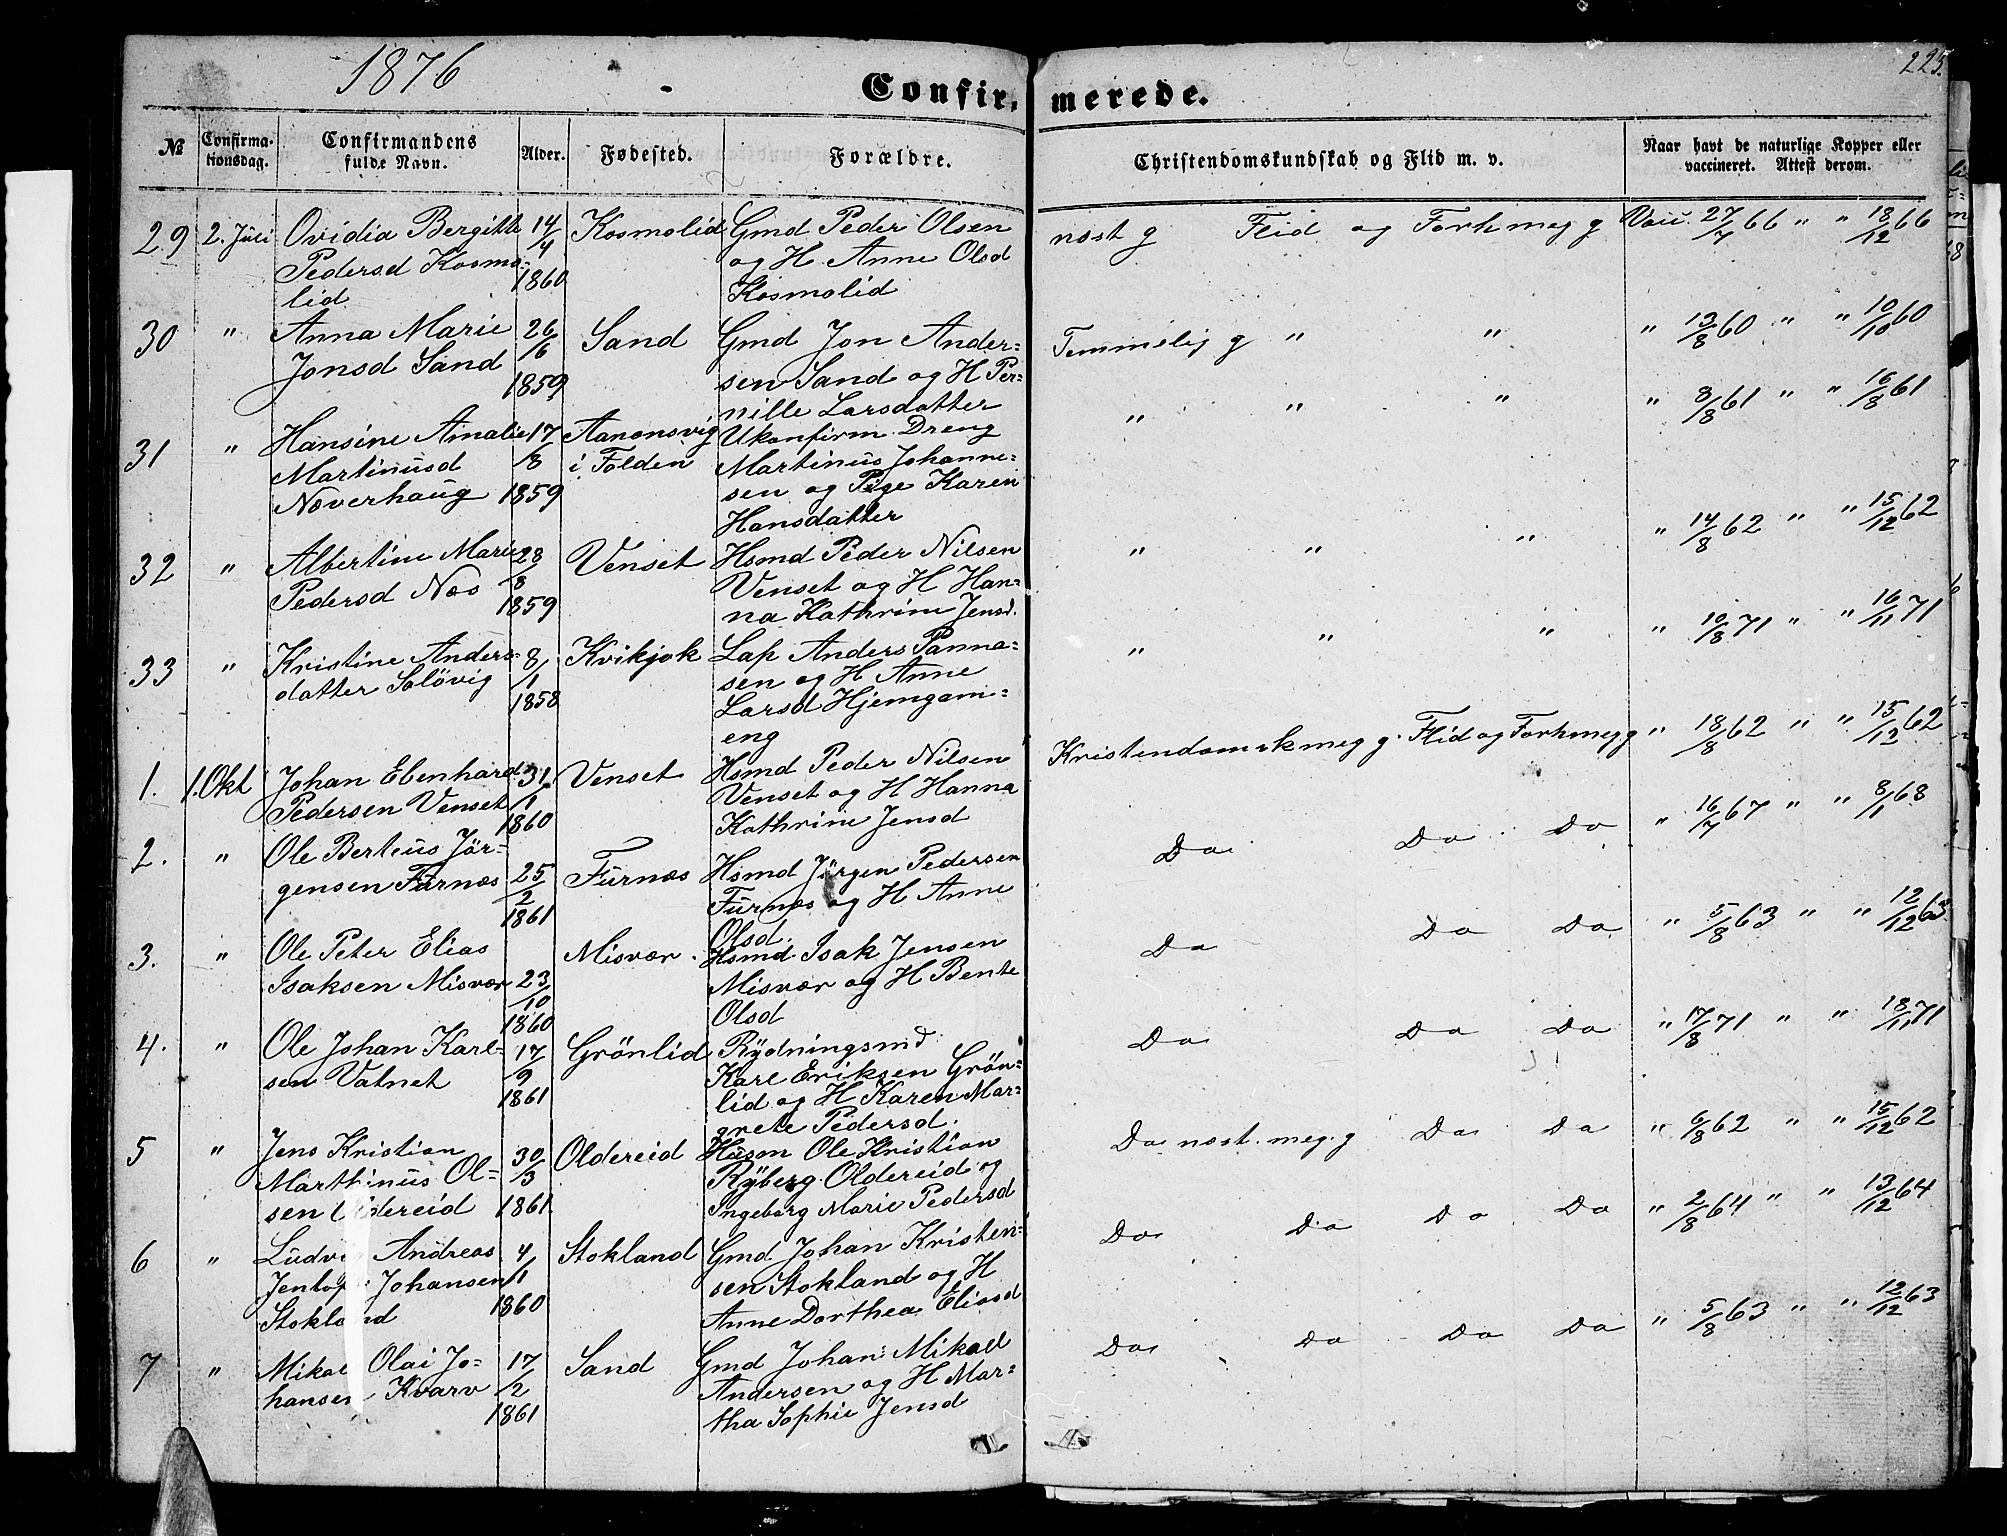 1876
225.
Confirmerede.
№
Confirmationsdag.
Confirmandens fulde Navn.
Alder.
Fødested.
Forældre.
Christendomskundskab og Flid m. v.
Naar havt de naturlige Kopper eller vaccineret. Attest derom.
29 2. Juli Ovidia Bergitte 14/4 Kosmolid Gmd Peder Olsen næst g Flid og Forh meg g Vac. 27/7 66 " " 18/12 66
Pedersd Kosmo- 1860 og H. Anne Olsd
lid Kosmolid
30 " Anna Marie 26/6 Sand Gmd Jon Ander= Temmelig g " " " 13/8 60 " " 10/10 60
Jonsd Sand 1859 sen Sand og H Per=
nille Larsdatter
31 " Hansine Amalie 17/8 Aanonsvig Ukonfirm. Dreng " " " " 8/8 61 " " 16/8 61
Martinusd i Folden Martinus Johanne=
Næverhaug 1859 sen og Pige Karen
Hansdatter
32 " Albertine Marie 28/8 Venset Hsmd Peder Nilsen " " " " 14/8 62 " " 15/12 62
Pedersd Næs 1859 Venset og H Han=
na Kathrine Jensd.
33 " Kristine Anders= 8/1 Kvikjok Lap Anders Panna= " " " " 10/8 71 " " 16/11 71
datter Solövig 1858 sen og H Anne
Larsd Hjemgam=
eng
1. 1. Okt Johan Ebenhard 31/1 Venset Hsmd Peder Nilsen Kristendomsk meg g. Flid og Forh meg g " 18/8 62 " " 15/12 62
Pedersen Venset 1860 Venset og H Hanna
Kathrine Jensd
2. " Ole Berteus Jör- 25/2 Furnæs Hsmd Jörgen Pedersen Do Do Do " 16/7 67 " " 8/1 68
gensen Furnæs 1861 Furnæs og H Anne
Olsd.
3. " Ole Peter Elias 23/10 Misvær. Hsmd Isak Jensen Do Do Do " 5/8 63 " " 12/12 63
Isaksen Misvær 1860 Misvær og H Bente
Olsd
4. " Ole Johan Karl= 17/9 Grönlid Rydningsmd Do Do Do " 17/8 71 " " 18/11 71
sen Vatnet 1861 Karl Eriksen Grön=
lid og H Karen Mar=
grete Pedersd.
5 " Jens Kristian 30/3 Oldereid Husm Ole Kristian Do næst. meg. g Do Do " 6/8 62 " " 15/12 62
Marthinus Ol= Ryberg Oldereid og
sen Oldereid 1861 Ingeborg Marie Pedersd
6 " Ludvig Andreas 4/1 Stokland Gmd. Johan Kristen= Do Do Do Do " 2/8 64 " " 13/12 64
Johansen sen Stokland og H
Stokland 1860 Anne Dorthea Eliasd
7 " Mikal Olai Jo- 17/2 Sand Gmd Johan Mikael Do Do Do Do " 5/8 63 " " 12/12 63
hansen Kvarv 1861 Andersen og H Mar=
tha Sophie Jensd